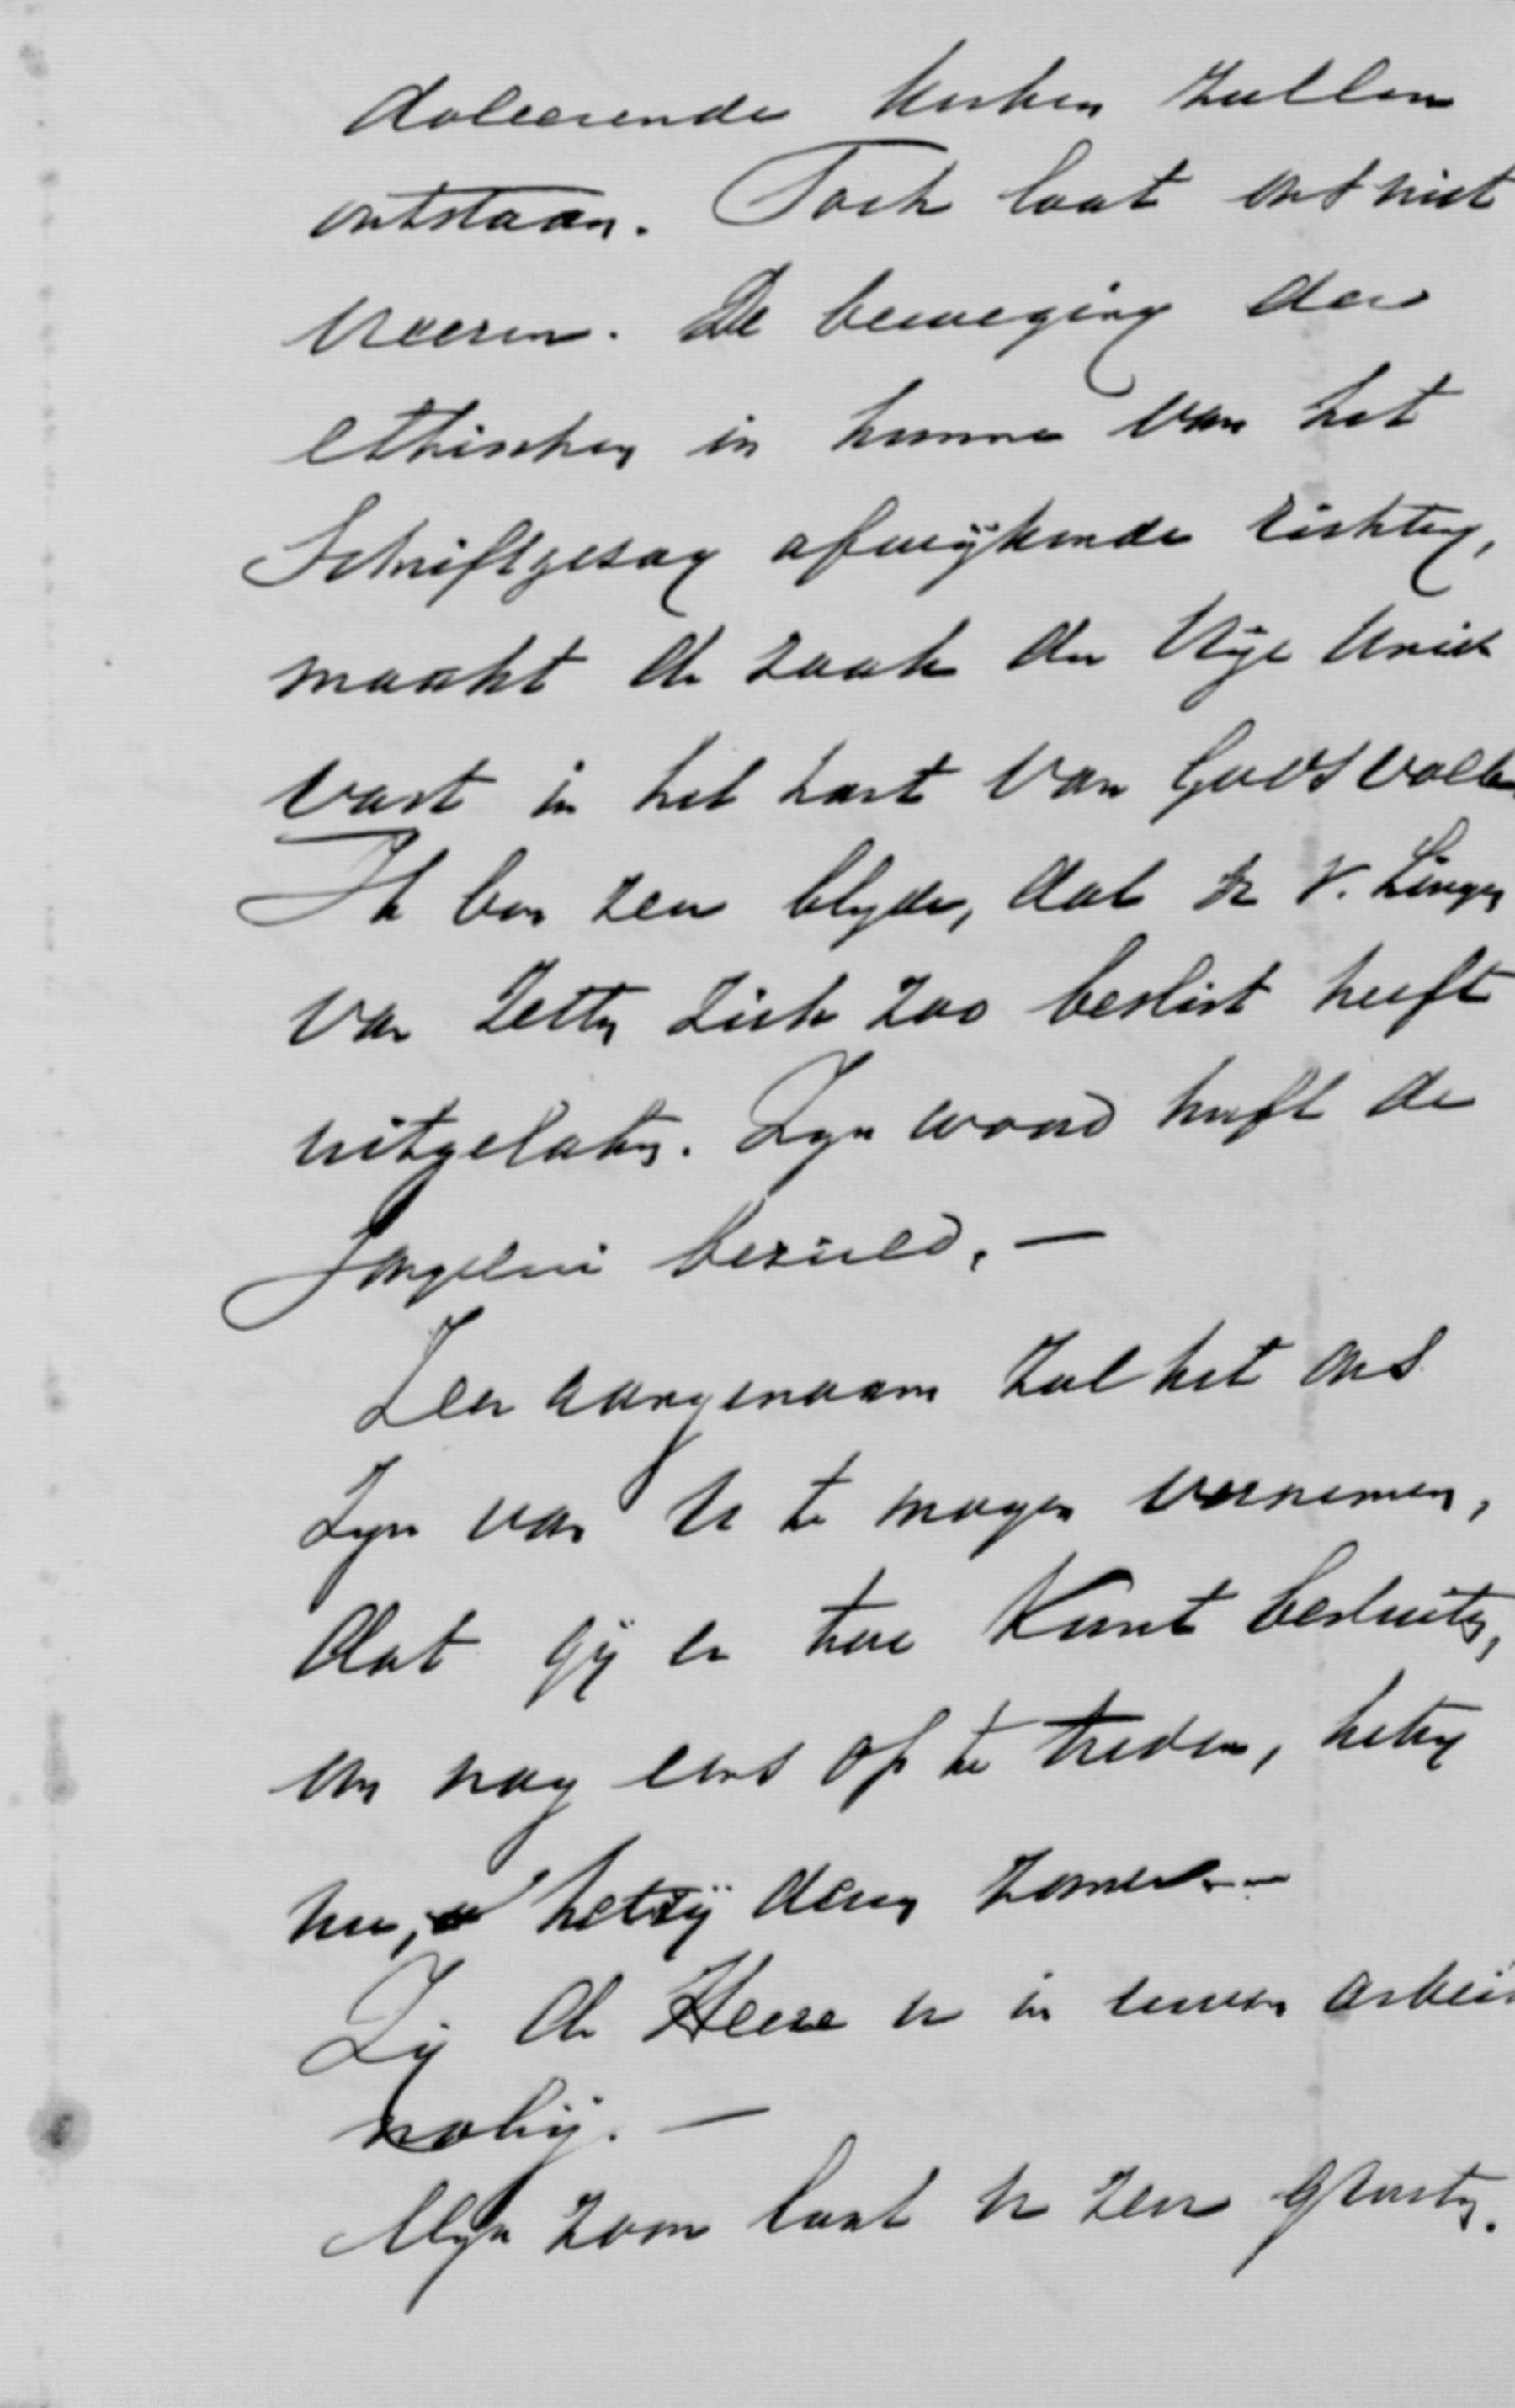 doleerende kerken zullen
ontstaan. Toch laat ons niet
vreezen. De beweging der
ethischen in hunne van het
Schriftgezag afwijkende richting,
maakt de zaak der Vrije Univ
vast in het hart van Gods volk.
Ik ben zeer blyde, dat Dr v. Lingen
van Zetten zich zoo beslist heeft
uitgelaten. Zyn woord heeft de
bezield. —
Zeer aangenaam zal het ons
zyn van U te mogen vernemen,
dat gij er toe kunt besluiten,
om nog eens op te treden, hetzy
nu, hetzij dezen zomer. —
Zij de Heere U in uwen arbeid
nabij. —
Myn zoon laat U zeer groeten.